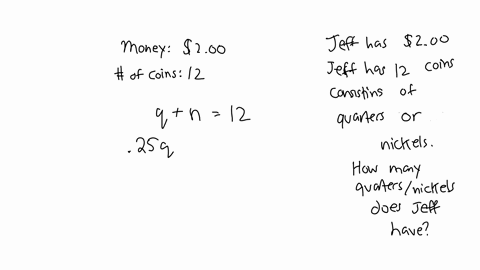 Money: $2.00
# of coins: 12
q + n = 12
.25q
Jeff has $2.00
Jeff has 12 coins
consisting of
quarters or
nickels.
How many
quarters/nickels
does Jeff
have?